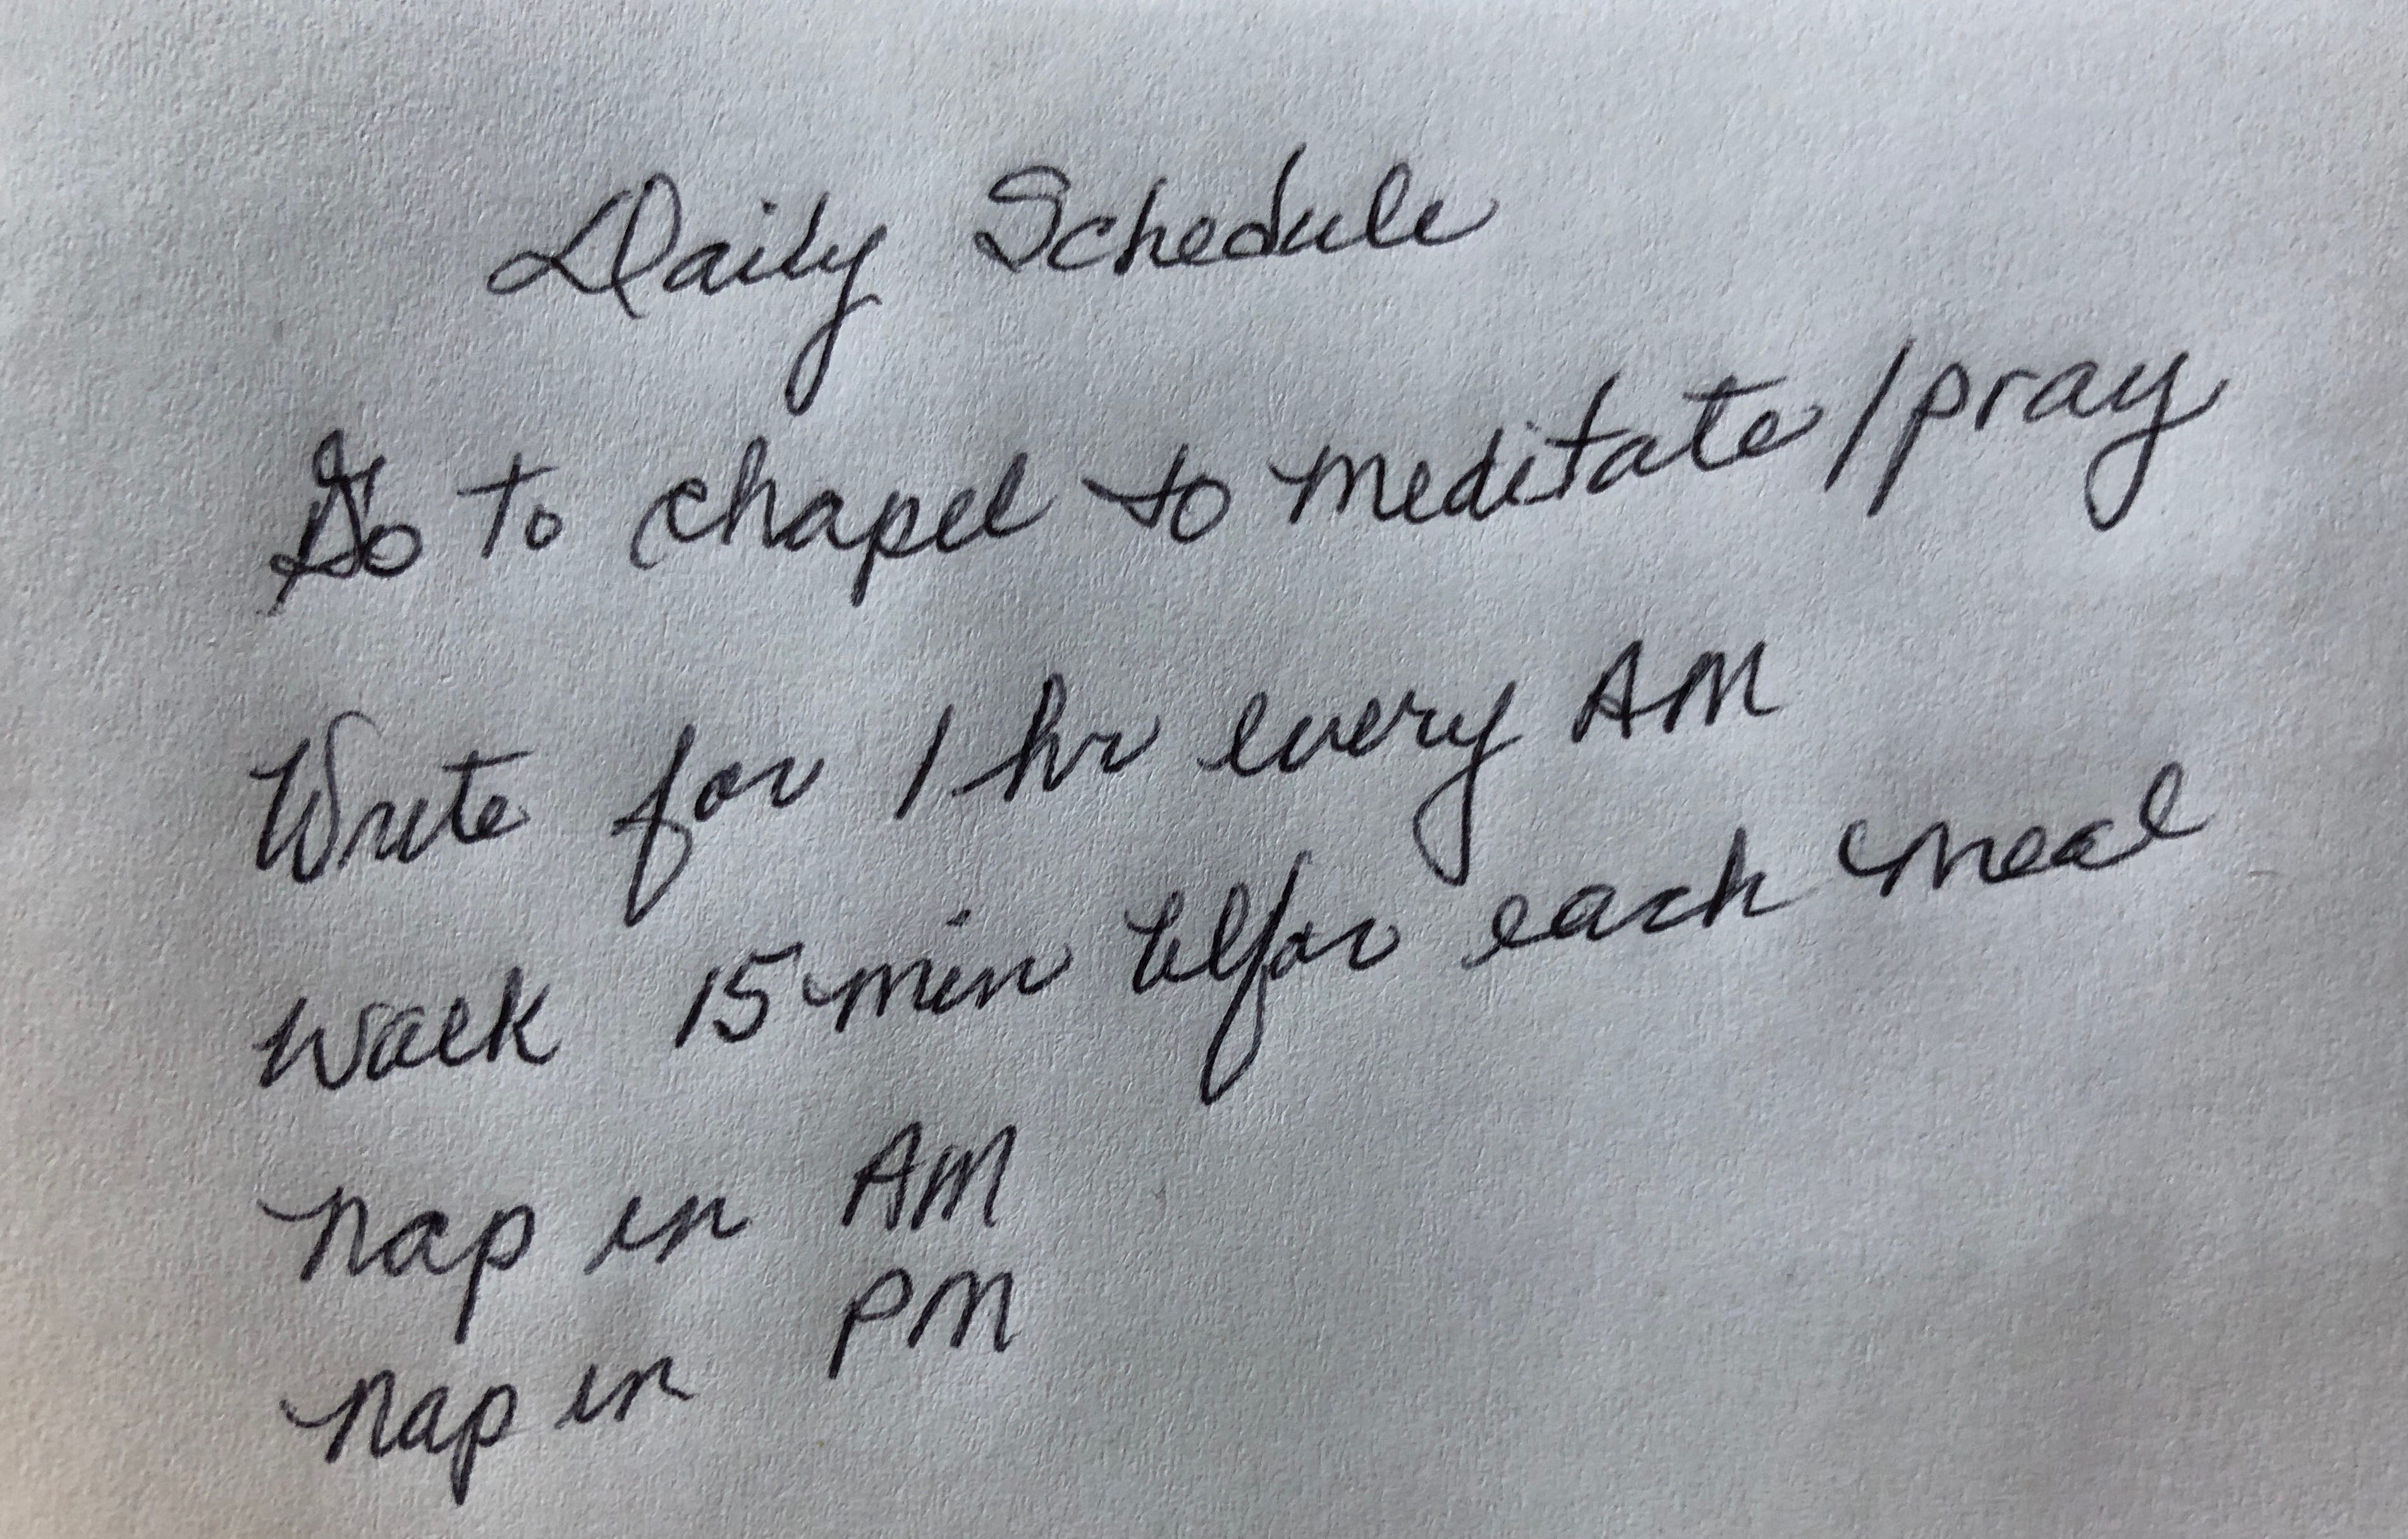 Daily Schedule
Go to chapel to meditate/pray
Write for 1 hr every AM
Walk 15 min befor each meal
Nap in AM
Nap in PM